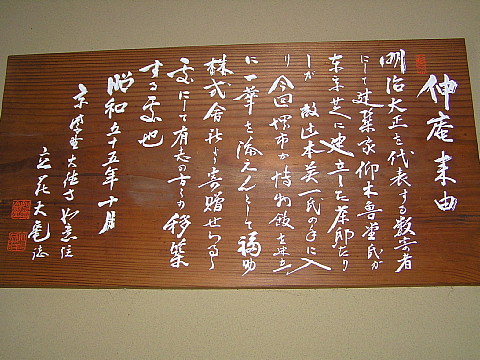 伸庵来由
明治大正を代表する数寄者
にて建築家仰木魯堂氏が
東京芝に建立した茶邸たり
しが 故山本英一氏の手に入
り 今回堺市が博物館を建立
に一華を添えんとして福助
株式会社より寄贈せらるゝ
処にして有志の方の移築
する処也
昭和五十五年十月
京紫野大徳寺如意住
立花大亀誌